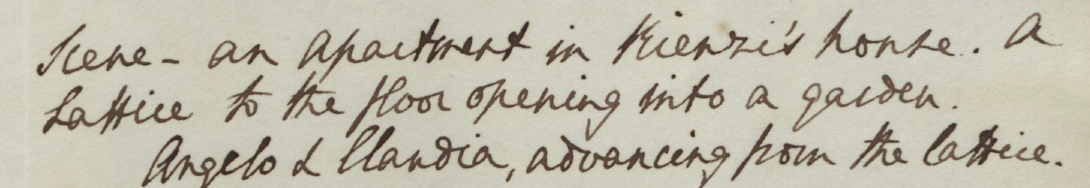 Scene - an apartment in Rienzi's house. A
Lattice to the floor opening into a garden.
Angelo & Claudia, advancing from the lattice.